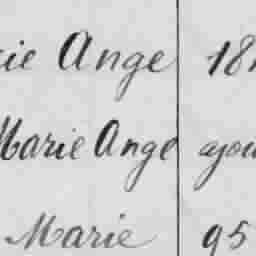 ie Ange 18
Marie Ange
Marie 95